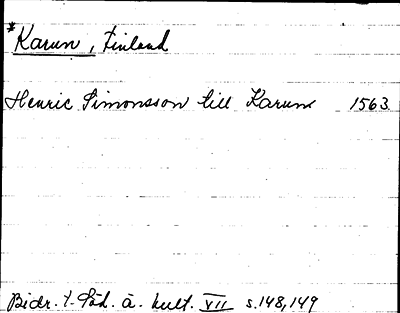 *Karun, Finland
Henric Simonsson till Karuna 1563
Bidr. t. Söd. ä. kult. VII s. 148, 149